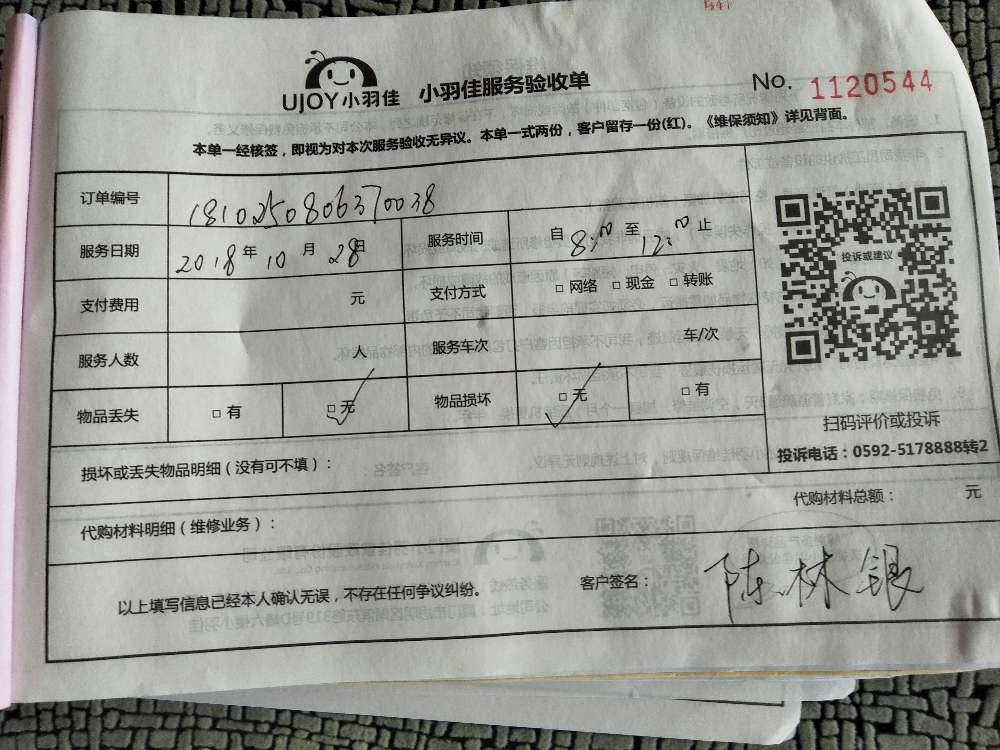 UJOY小羽佳 小羽佳服务验收单 No. 1120544
本单一经核签，即视为对本次服务验收无异议。本单一式两份，客户留存一份(红)。《维保须知》详见背面。
订单编号 1810250806370038
服务日期 2018年10月28日 服务时间 自8:00至12:00止
投诉或建议
支付费用 元 支付方式 □ 网络 □ 现金 □ 转账
服务人数 人 服务车次 车/次
物品丢失 □ 有 □ 无 物品损坏 □ 无 □ 有
扫码评价或投诉
投诉电话：0592-5178888转2
损坏或丢失物品明细（没有可不填）：
代购材料总额： 元
代购材料明细（维修业务）：
以上填写信息已经本人确认无误，不存在任何争议纠纷。 客户签名： 陈林银